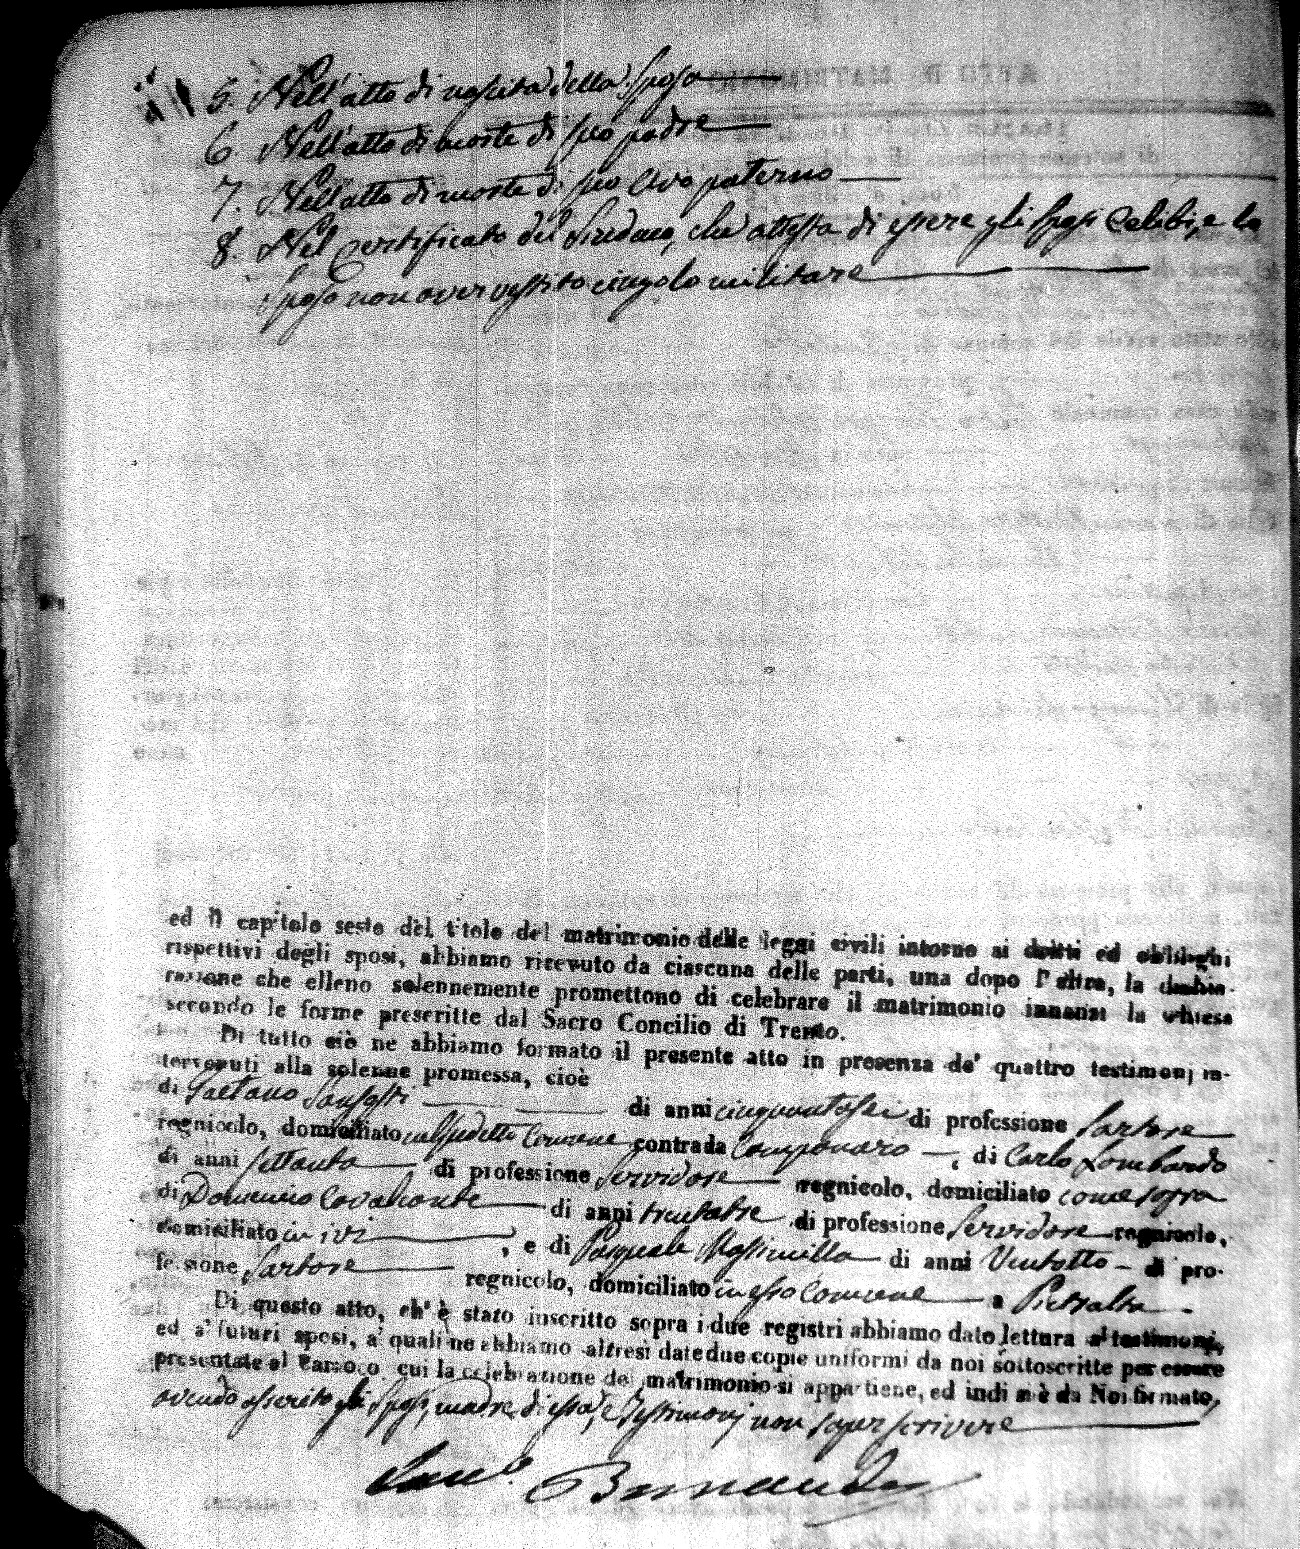 5. Nell'atto di nascita della Sposa
6. Nell'atto di morte di suo padre
7. Nell'atto di morte di suo Avo paterno
8. Nel certificato del Sindaco, che attesta di essere gli sposi celibi, e lo
sposo non aver vestito cingolo militare
ed il capitolo sesto del titolo del matrimonio delle leggi civili intorno ai dritti ed obblighi
rispettivi degli sposi, abbiamo ricevuto da ciascuna delle parti, una dopo l'altra, la dichia-
razione che elleno solennemente promettono di celebrare il matrimonio innanzi la chiesa
secondo le forme prescritte dal Sacro Concilio di Trento.
Di tutto ciò ne abbiamo formato il presente atto in presenza de' quattro testimonj in-
tervenuti alla solenne promessa, cioè
di Gaetano di anni cinquantasei di professione Sartore
regnicolo, domiciliato in Comune contrada Camponaro, di Carlo Lombardo
di anni settanta di professione Servidore regnicolo, domiciliato come sopra
di Domenico Cavalcante di anni trentatre di professione Servidore regnicolo,
domiciliato in ivi, e di Pasquale Massimilla di anni Ventotto di pro-
fessione Sartore regnicolo, domiciliato in esso Comune a Pietralta
Di questo atto, ch'è stato inscritto sopra i due registri abbiamo dato lettura a' testimonj,
ed a' futuri sposi, a' quali ne abbiamo altresì date due copie uniformi da noi sottoscritte per essere
presentate al Parroco, cui la celebrazione del matrimonio si appartiene, ed indi si è da Noi firmato,
avendo asserito gli Sposi, madre di essa, e Testimonj non saper scrivere